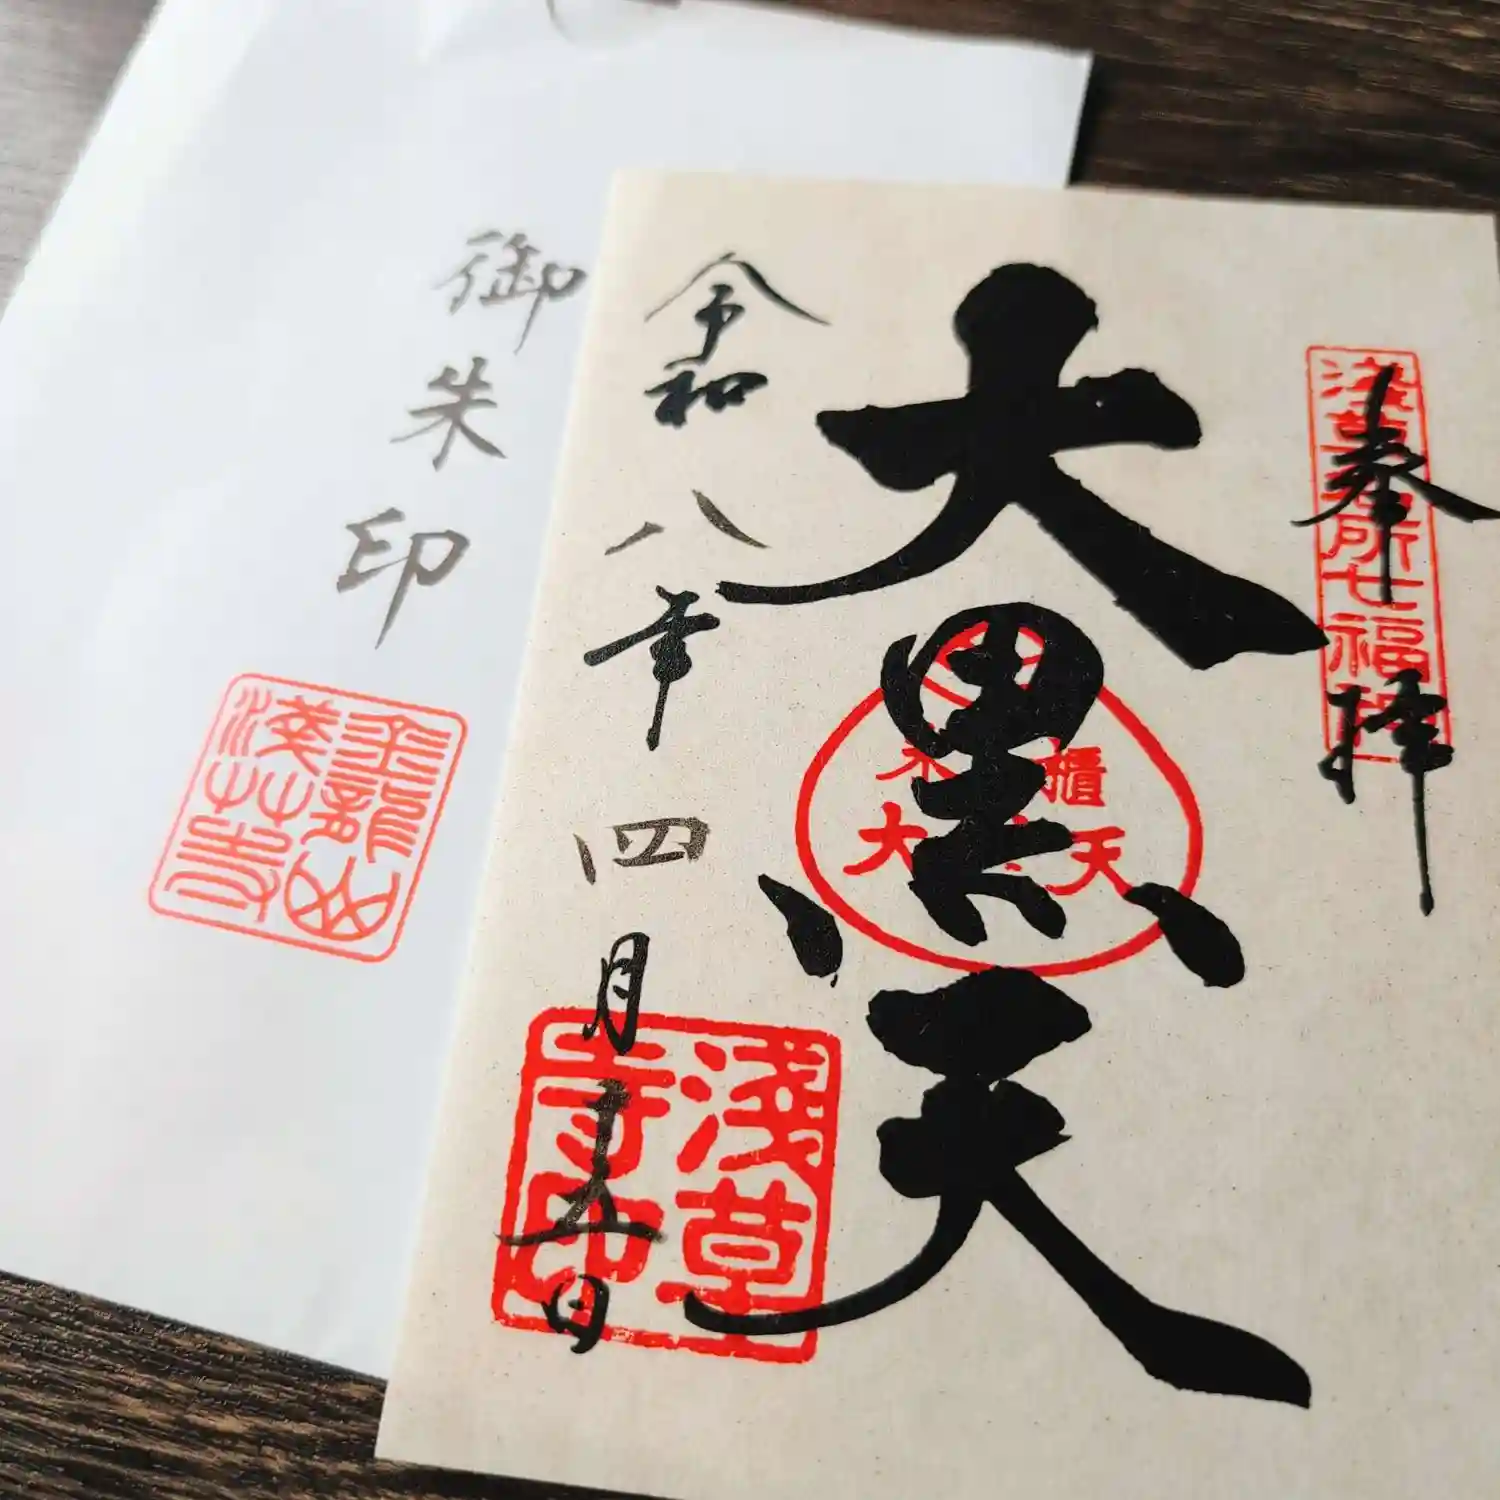 奉拝
浅草名所七福神
大黒天
米櫃
大黒天
令和八年四月十五日
淺草
寺印
御朱印
金龍山
淺草寺